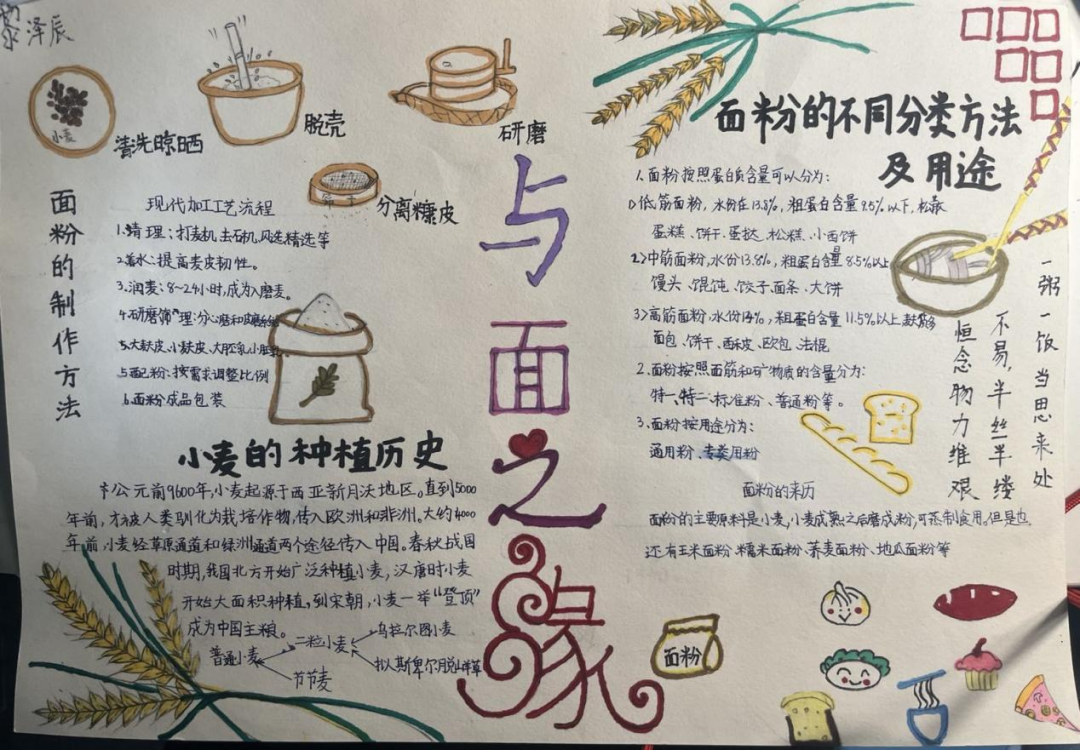 黎泽辰
小麦
清洗晾晒
脱壳
研磨
分离糠皮
面粉的制作方法
现代加工工艺流程
1.清理：打麦机、去石机、风选精选等
2.着水：提高麦皮韧性。
3.润麦：8-24小时，成为入磨麦。
4.研磨筛理：分心磨和皮磨
5.大麸皮、小麸皮、大胚乳、小胚乳
5面配粉：按需求调整比例
6.面粉成品包装
小麦的种植历史
公元前9600年，小麦起源于西亚新月沃地区。直到5000
年前，才被人类驯化为栽培作物，传入欧洲和非洲。大约4000
年前，小麦经草原通道和绿洲通道两个途径传入中国。春秋战国
时期，我国北方开始广泛种植小麦，汉唐时小麦
开始大面积种植，到宋朝，小麦一举“登顶”
成为中国主粮。
普通小麦
二粒小麦
节节麦
乌拉尔图小麦
拟斯俾尔脱山羊草
与面之缘
面粉的不同分类方法
及用途
1.面粉按照蛋白质含量可以分为：
1>低筋面粉，水份在13.8%，粗蛋白含量9.5%以下，松散
蛋糕、饼干、蛋挞、松糕、小西饼
2>中筋面粉，水份13.8%，粗蛋白含量8.5%以上
馒头、馄饨、饺子、面条、大饼
3>高筋面粉，水份14%，粗蛋白含量11.5%以上
面包、饼干、酥皮、欧包、法棍
2.面粉按照面筋和矿物质的含量分为：
特一、特二、标准粉、普通粉等。
3.面粉按用途分为：
通用粉、专类用粉
面粉的来历
面粉的主要原料是小麦，小麦成熟之后磨成粉，可蒸制食用。但是也
还有玉米面粉、糯米面粉、荞麦面粉、地瓜面粉等
一粥一饭当思来处
不易，半丝半缕
恒念物力维艰
面粉